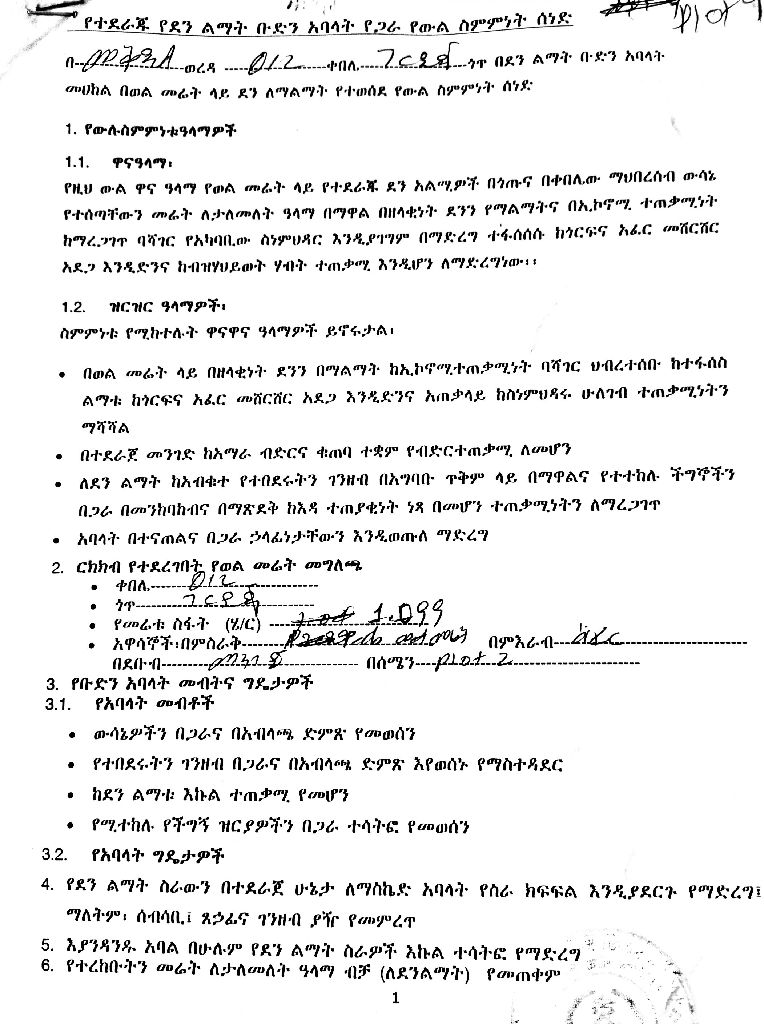 የተደራጁ የደን ልማት ቡድን አባላት የጋራ የውል ስምምነት ሰነድ
plot 9
በ--- ወረዳ ----- 012 ---ቀበሌ--- ---ጎጥ በደን ልማት ቡድን አባላት
መሀከል በወል መሬት ላይ ደን ለማልማት የተወሰደ የውል ስምምነት ሰነድ
1. የውሉስምምነቱዓላማዎች
1.1. ዋናዓላማ፡
የዚህ ውል ዋና ዓላማ የወል መሬት ላይ የተደራጁ ደን አልሚዎች በጎጡና በቀበሌው ማህበረሰብ ውሳኔ
የተሰጣቸውን መሬት ለታለመለት ዓላማ በማዋል በዘላቂነት ደንን የማልማትና በኢኮኖሚ ተጠቃሚነት
ከማረጋገጥ ባሻገር የአካባቢው ስነምህዳር እንዲያገግም በማድረግ ተፋሰሰሱ ከጎርፍና አፈር መሸርሸር
አደጋ እንዲድንና ከብዝሃህይወት ሃብት ተጠቃሚ እንዲሆን ለማድረግነው፡፡
1.2. ዝርዝር ዓላማዎች፡
ስምምነቱ የሚከተሉት ዋናዋና ዓላማዎች ይኖሩታል፡
• በወል መሬት ላይ በዘላቂነት ደንን በማልማት ከኢኮኖሚተጠቃሚነት ባሻገር ህብረተሰቡ ከተፋሰስ
ልማቱ ከጎርፍና አፈር መሸርሸር አደጋ እንዲድንና አጠቃላይ ከስነምህዳሩ ሁለገብ ተጠቃሚነትን
ማሻሻል
• በተደራጀ መንገድ ከአማራ ብድርና ቁጠባ ተቋም የብድርተጠቃሚ ለመሆን
• ለደን ልማት ከአብቁተ የተበደሩትን ገንዘብ በአግባቡ ጥቅም ላይ በማዋልና የተተከሉ ችግኞችን
በጋራ በመንከባከብና በማጽደቅ ከእዳ ተጠያቂነት ነጻ በመሆን ተጠቃሚነትን ለማረጋገጥ
• አባላት በተናጠልና በጋራ ኃላፊነታቸውን እንዲወጡለ ማድረግ
2. ርክክብ የተደረገበት የወል መሬት መግለጫ
• ቀበሌ------ 012 ------
• ጎጥ------
• የመሬቱ ስፋት (ሄ/ር) ------ 1.099
• አዋሳኞች፡በምስራቅ------ በምእራብ------
በደቡብ------ በሰሜን--- plot 2 ------
3. የቡድን አባላት መብትና ግዴታዎች
3.1. የአባላት መብቶች
• ውሳኔዎችን በጋራና በአብላጫ ድምጽ የመወሰን
• የተበደሩትን ገንዘብ በጋራና በአብላጫ ድምጽ እየወሰኑ የማስተዳደር
• ከደን ልማቱ እኩል ተጠቃሚ የመሆን
• የሚተከሉ የችግኝ ዝርያዎችን በጋራ ተሳትፎ የመወሰን
3.2. የአባላት ግዴታዎች
4. የደን ልማት ስራውን በተደራጀ ሁኔታ ለማስኬድ አባላት የስራ ክፍፍል እንዲያደርጉ የማድረግ፤
ማለትም፡ ሰብሳቢ፤ ጸኃፊና ገንዘብ ያዥ የመምረጥ
5. እያንዳንዱ አባል በሁሉም የደን ልማት ስራዎች እኩል ተሳትፎ የማድረግ
6. የተረከቡትን መሬት ለታለመለት ዓላማ ብቻ (ለደንልማት) የመጠቀም
1